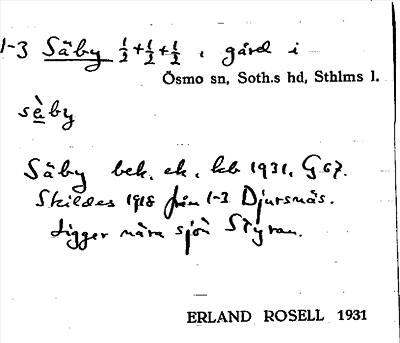 1-3 Säby ½+½+½, gård i
Ösmo sn, Soth.s hd, Sthlms l.
sè̱by
Säby bek. ek. kb 1931, G.67.
Skildes 1918 från 1-3 Djursnäs.
Ligger nära sjön Styran.
ERLAND ROSELL 1931